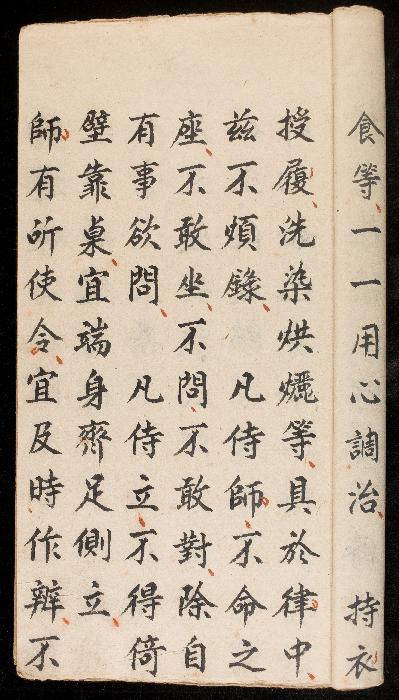 食等一一用心調治 持衣
授履洗染烘曬等具於律中
兹不煩錄 凡侍師不命之
座不敢坐不問不敢對除自
有事欲問 凡侍立不得倚
壁靠桌宜端身齊足側立
師有所使令宜及時作辦不